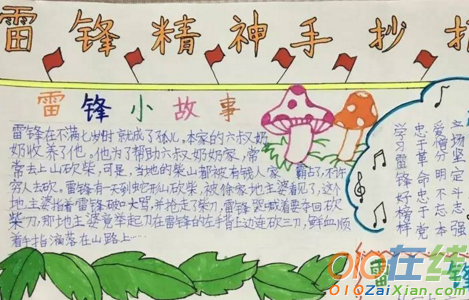 雷锋精神手抄报
雷锋小故事
雷锋在不满七岁时就成了孤儿，本家的六叔奶
奶收养了他。他为了帮助六叔奶奶家，常
常去上山砍柴，可是，当地的柴山都被有钱人家霸占了，不许
穷人去砍。雷锋有一天到蛇形山砍柴，被徐家地主婆看见了，这个
地主婆指着雷锋破口大骂，并抢走了柴刀，雷锋哭喊着要夺回砍
柴刀，那地主婆竟举起刀在雷锋的左手背上边连砍三刀，鲜血顺
着手指滴落在山路上…
学习雷锋好榜样
忠于革命忠于党
爱憎分明不忘本
立场坚定斗志强
雷锋
010在线
010ZaiXian.com